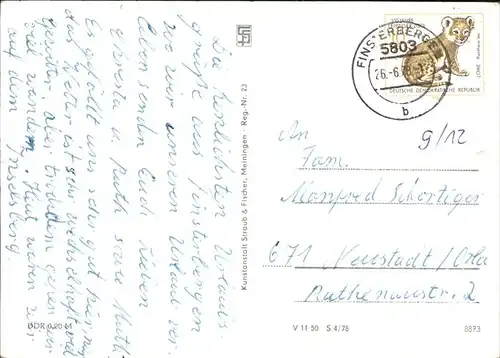 Die herzlichsten Urlaubs-
grüße aus Finsterbergen
wo wir unseren Urlaub ver-
leben senden Euch Lieben
Christa u. Ruth sowie Mutti
Es gefällt uns sehr gut hier, nur
das Wetter ist sehr
Gewitter, aber trotzdem gehen wir
viel wandern. Heut waren wir
auf dem Inselsberg.
BDR 0,20 M
Kunstanstalt Straub & Fischer, Meiningen · Reg.-Nr. 23
FINSTERBERGEN
5803
26.-6.78
b
LÖWE Panthera leo
DEUTSCHE DEMOKRATISCHE REPUBLIK
9/12
An
Fam.
Manfred Schortiger
671 Neustadt/Orla
Rathenaustr. 2
V 11 50 S 4/78 8873